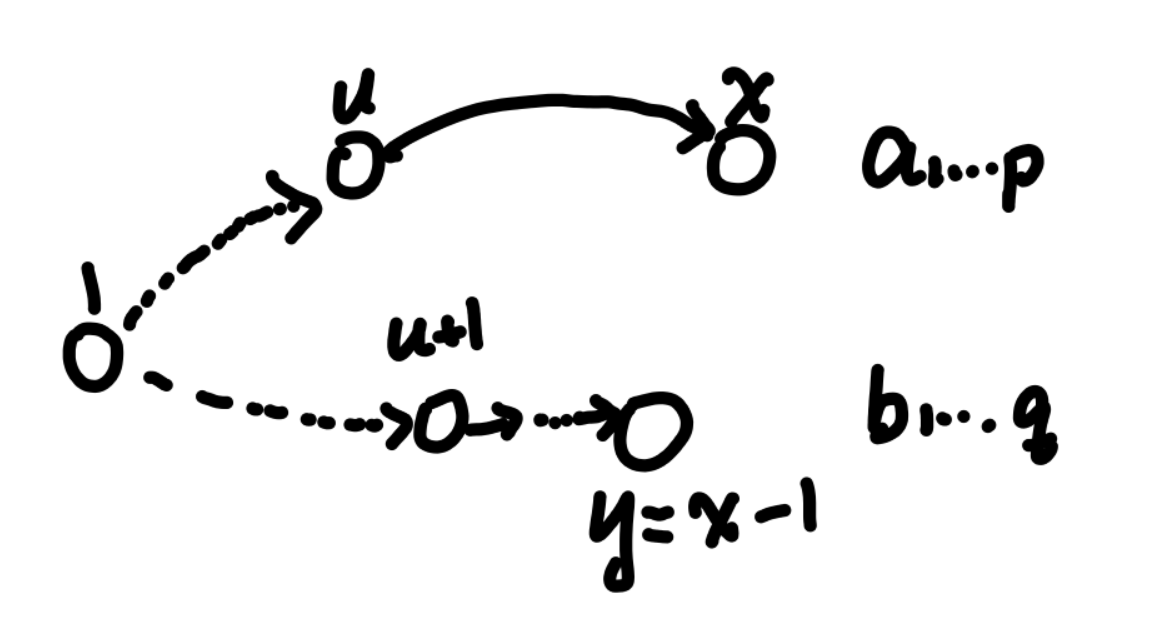 u
x
a,...p
1
u+1
b,...q
y=x-1